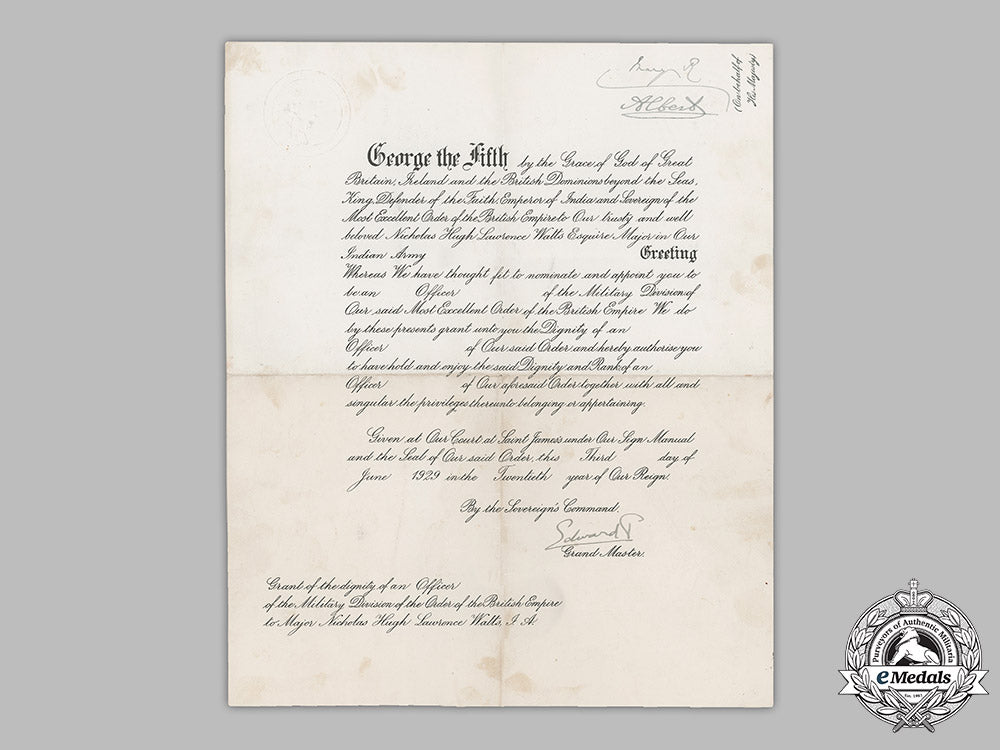 Mary R
Albert
(On behalf of
His Majesty)
George the Fifth by the Grace of God of Great
Britain, Ireland and the British Dominions beyond the Seas,
King, Defender of the Faith, Emperor of India and Sovereign of the
Most Excellent Order of the British Empire to Our trusty and well
beloved Nicholas Hugh Lawrence Watts Esquire Major in Our
Indian Army Greeting
Whereas We have thought fit to nominate and appoint you to
be an Officer of the Military Division of
Our said Most Excellent Order of the British Empire We do
by these presents grant unto you the Dignity of an
Officer of Our said Order and hereby authorise you
to have hold and enjoy the said Dignity and Rank of an
Officer of Our aforesaid Order together with all and
singular the privileges thereunto belonging or appertaining.
Given at Our Court at Saint James's under Our Sign Manual
and the Seal of Our said Order, this Third day of
June 1929 in the Twentieth year of Our Reign.
By the Sovereign's Command.
Edward P
Grand Master.
Grant of the dignity of an Officer
of the Military Division of the Order of the British Empire
to Major Nicholas Hugh Lawrence Watts, I.A.
Purveyors of Authentic Militaria
eMedals
Est. 1967